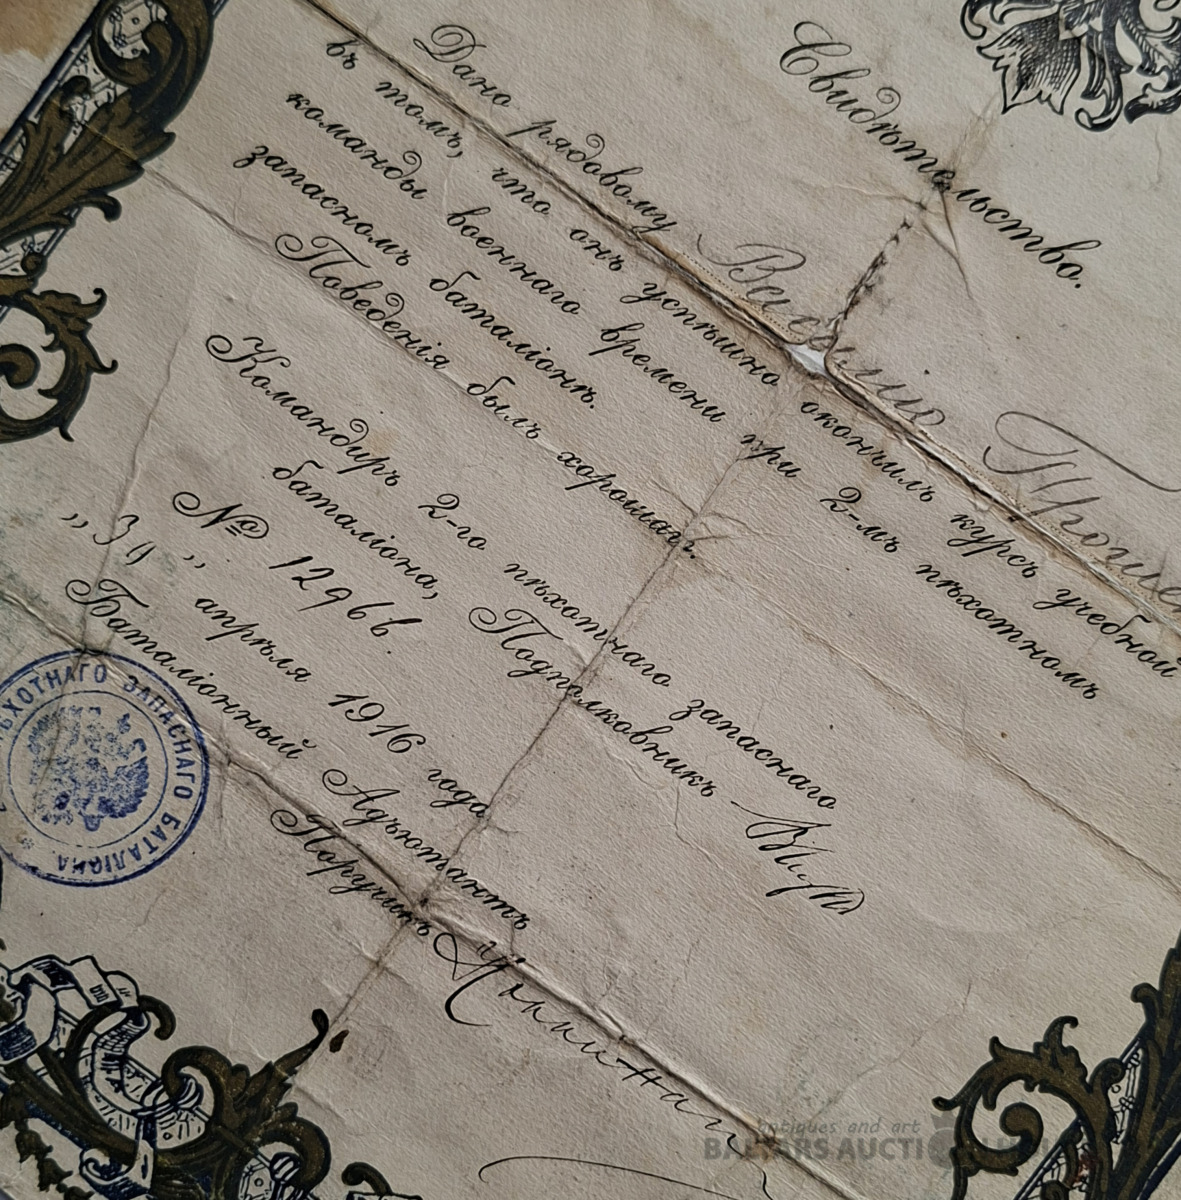 Свидѣтельство.
Дано рядовому Василию
въ томъ, что онъ успѣшно окончилъ курсъ учебной
команды военнаго времени при 2-мъ пѣхотномъ
запасномъ баталіонѣ.
Поведенія былъ хорошаго.
Командиръ 2-го пѣхотнаго запаснаго
баталіона, Подполковникъ
№ 12966.
„30„ апрѣля 1916 года
Баталіонный Адъютантъ
Поручикъ
ПѢХОТНАГО ЗАПАСНАГО БАТАЛІОНА
antiques and art
BALTARS AUCTION